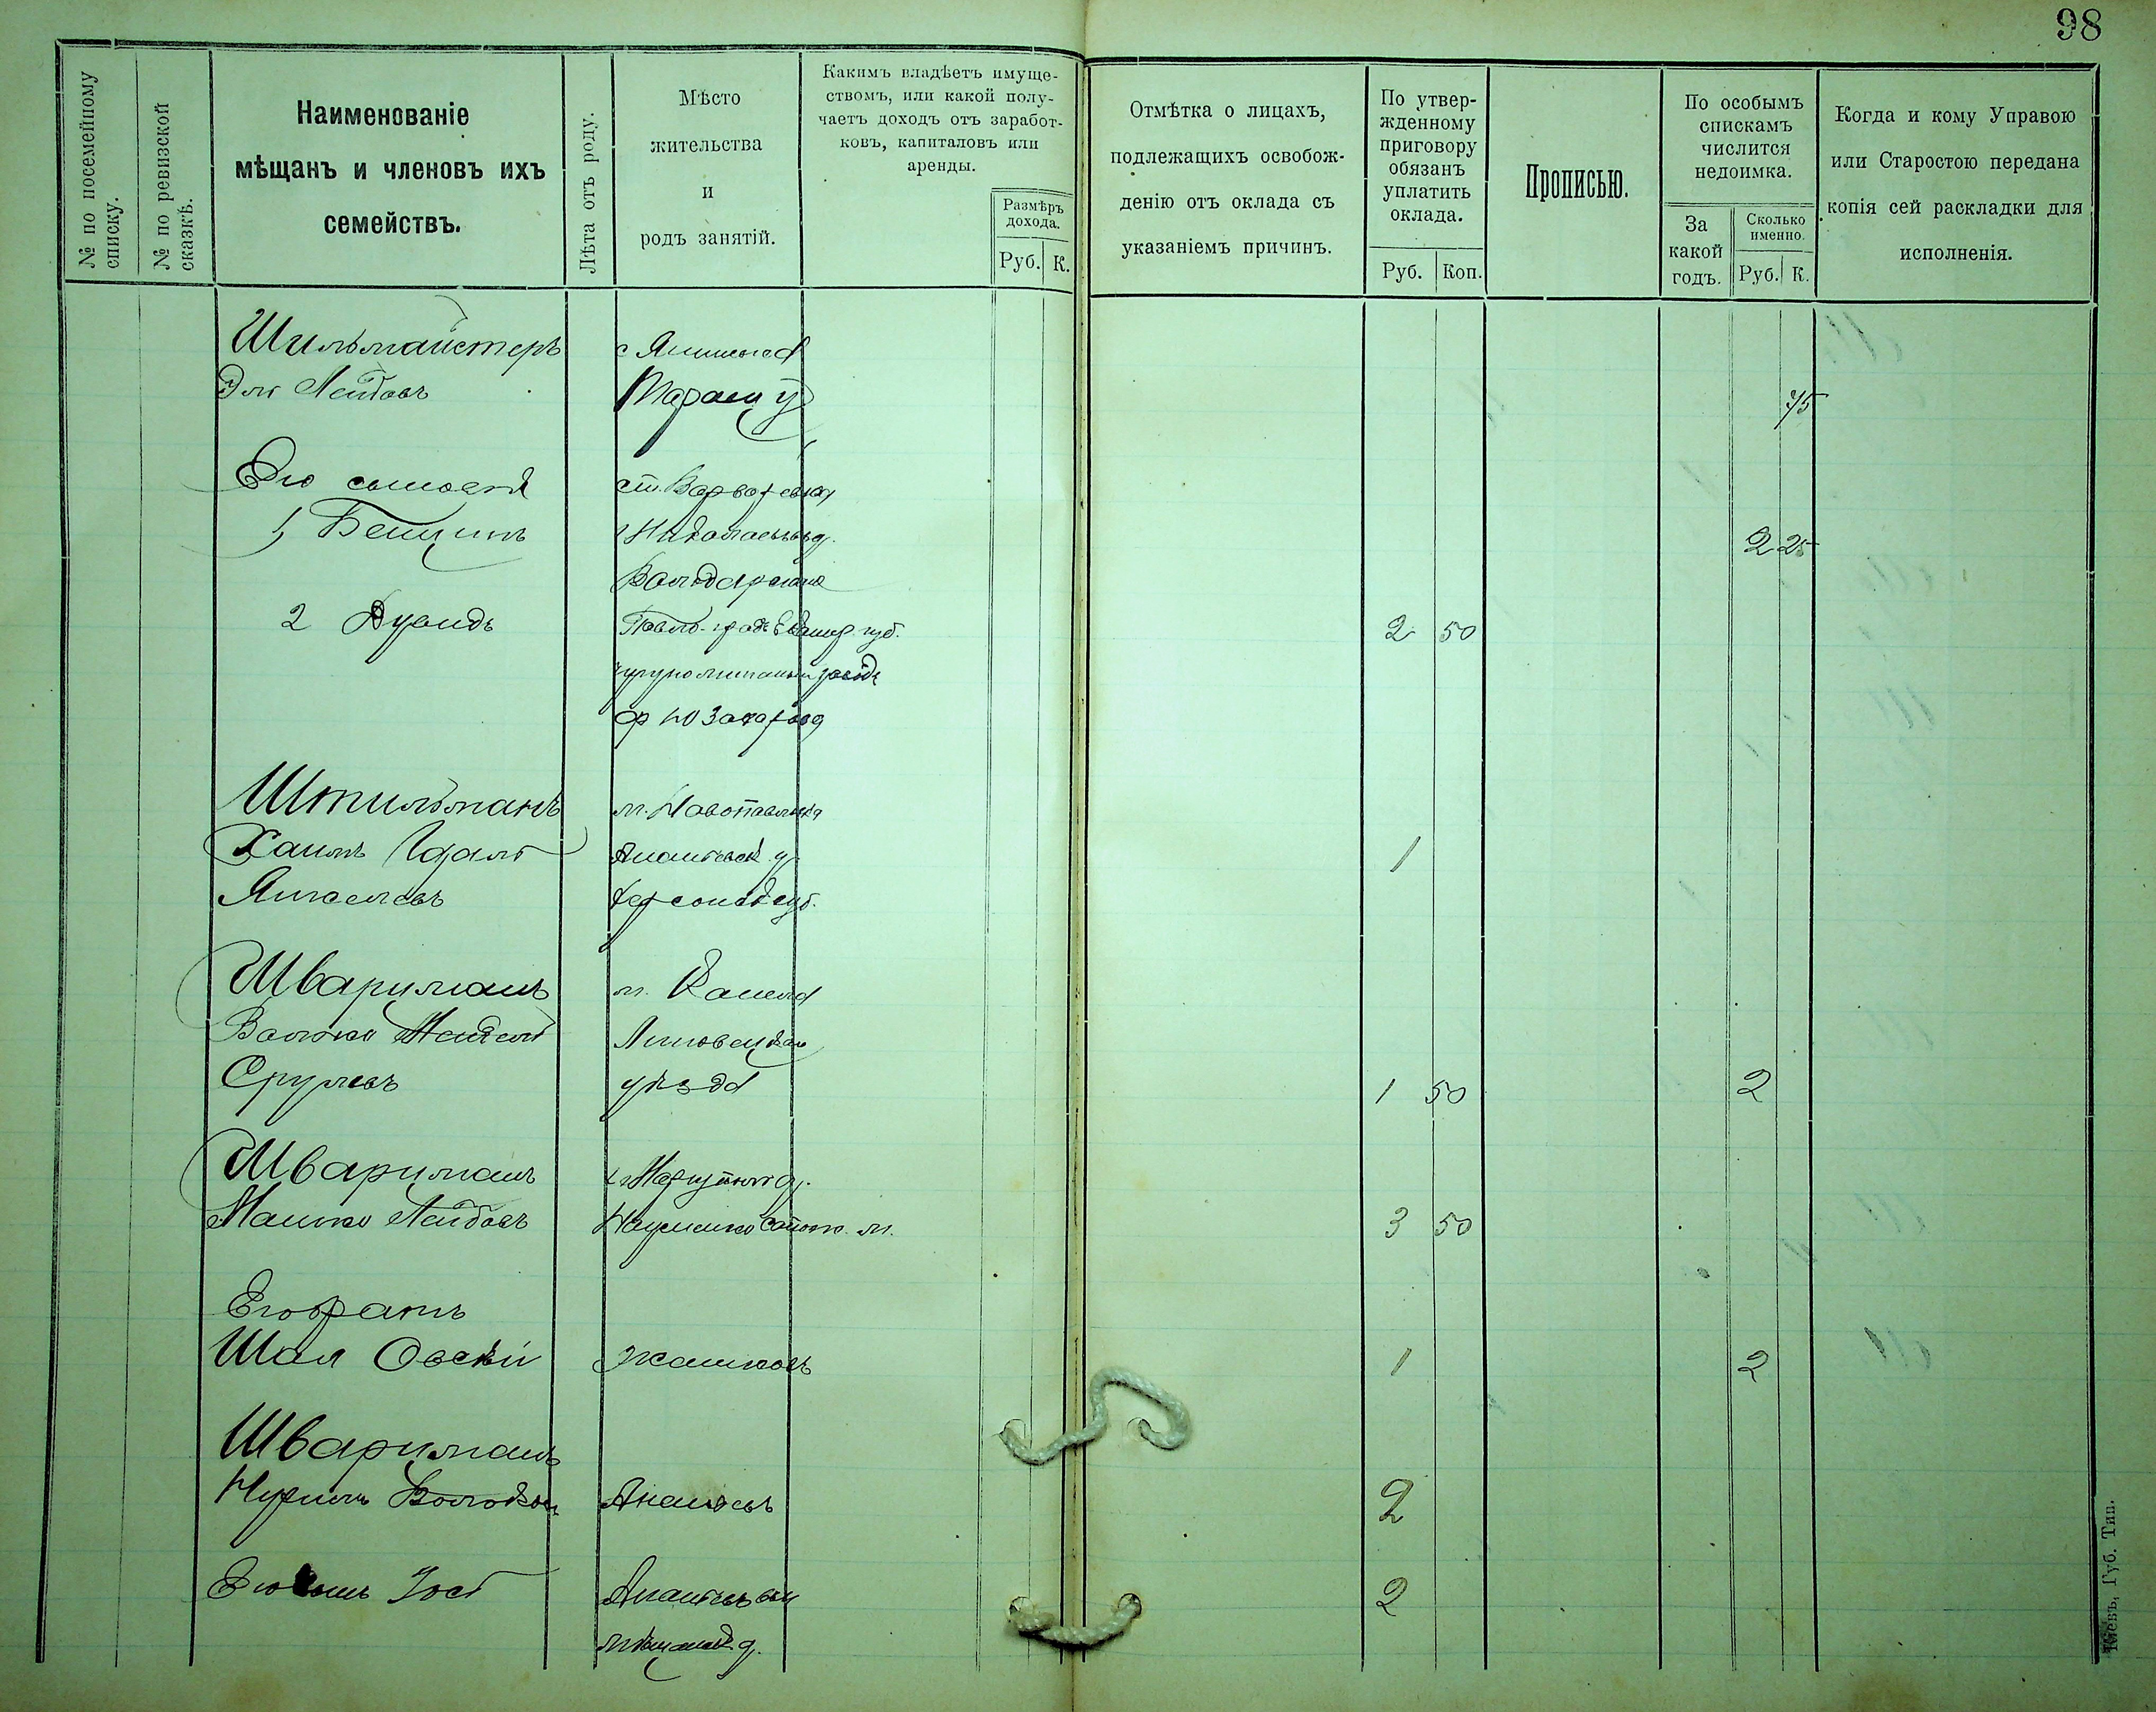 98
№ по посемейному списку.
№ по ревизской сказкѣ.
Наименованіе
мѣщанъ и членовъ ихъ
семействъ.
Лѣта отъ роду.
Мѣсто
жительства
и
родъ занятій.
Какимъ владѣетъ имуще-
ствомъ, или какой полу-
чаетъ доходъ отъ заработ-
ковъ, капиталовъ или
аренды.
Размѣръ
дохода.
Руб. К.
Отмѣтка о лицахъ,
подлежащихъ освобож-
денію отъ оклада съ
указаніемъ причинъ.
По утвер-
жденному
приговору
обязанъ
уплатить
оклада.
Руб. Коп.
Прописью.
По особымъ
спискамъ
числится
недоимка.
За
какой
годъ.
Сколько
именно.
Руб. К.
Когда и кому Управою
или Старостою передана
копія сей раскладки для
исполненія.
Шильмайстеръ
Эля Лейбовъ Тараща у 75
Его сыновья
1 2 25
Володарская
2 Дувидъ 2 50
Штильманъ м. Новопавловка
Хаимъ Ананьевск у. 1
Янкелевъ Херсонск губ.
Шварцманъ м.
Волько Липовецкаго
Срулевъ уѣзда 1 50 2
Шварцманъ
Мошко Лейбовъ 3 50
Его братъ
Шая Овсѣй Жашковъ 1 2
Шварцманъ
Нухимъ Ананьевъ 2
Его сынъ Іосъ 2
Кіевъ, Губ. Тип.